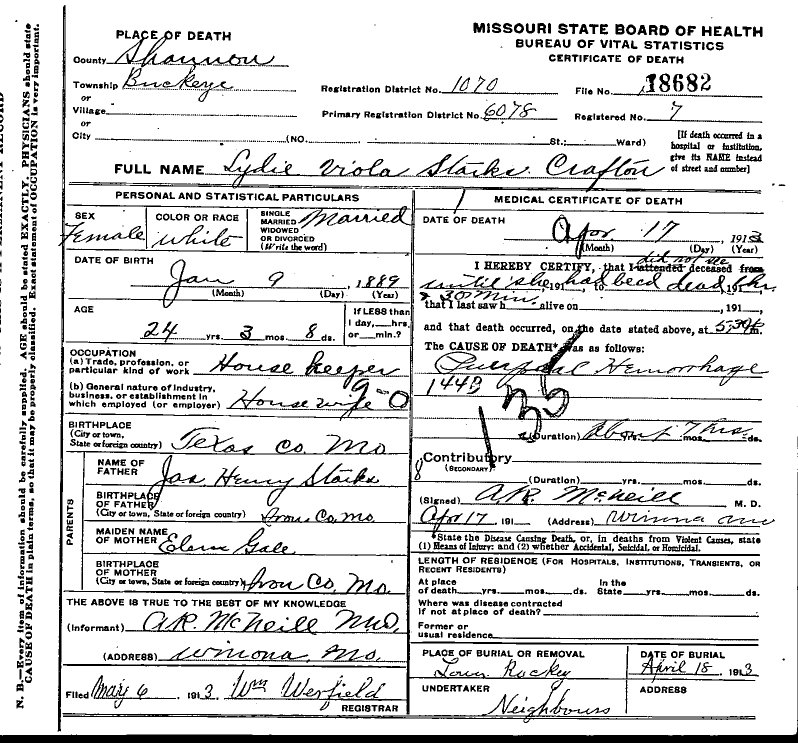 MISSOURI STATE BOARD OF HEALTH
BUREAU OF VITAL STATISTICS
CERTIFICATE OF DEATH
PLACE OF DEATH
County Shannon
Township Buckeye
or
Village
or
City (NO. St.; Ward)
Registration District No. 1070 File No. 18682
Primary Registration District No. 6078 Registered No. 7
[If death occurred in a
hospital or institution,
give its NAME instead
of street and number]
FULL NAME Lydie Viola Starks Crafton
PERSONAL AND STATISTICAL PARTICULARS
SEX Female
COLOR OR RACE white
SINGLE
MARRIED
WIDOWED
OR DIVORCED
(Write the word)
Married
DATE OF BIRTH
Jan 9, 1889
(Month) (Day) (Year)
AGE
24 yrs. 3 mos. 8 ds.
If LESS than
1 day, hrs.
or min.?
OCCUPATION
(a) Trade, profession, or
particular kind of work House keeper
(b) General nature of industry,
business, or establishment in
which employed (or employer) House wife 9-0
BIRTHPLACE
(City or town,
State or foreign country) Texas Co. Mo
PARENTS
NAME OF
FATHER Jas Henry Starks
BIRTHPLACE
OF FATHER
(City or town, State or foreign country) Iron Co. Mo.
MAIDEN NAME
OF MOTHER Gale
BIRTHPLACE
OF MOTHER
(City or town, State or foreign country) Iron Co. Mo.
THE ABOVE IS TRUE TO THE BEST OF MY KNOWLEDGE
(Informant) A.R. McNeill MD.
(ADDRESS) Winona, Mo.
Filed May 6, 1913 Wm Werfield
REGISTRAR
MEDICAL CERTIFICATE OF DEATH
DATE OF DEATH
Apr 17 1913
(Month) (Day) (Year)
did not see
I HEREBY CERTIFY, that I attended deceased from
until she, 191 had been dead, 191 hr.
& 30 min.
that I last saw h alive on, 191,
and that death occurred, on the date stated above, at 5:30 m.
The CAUSE OF DEATH* was as follows:
Puerperal Hemorrhage
144B
135
(Duration) About 7 hrs. mos. ds.
Contributory
(SECONDARY)
8
(Duration) yrs. mos. ds.
(Signed) A.R. McNeill M. D.
Apr 17 191 (Address) Winona Mo
*State the Disease Causing Death, or, in deaths from Violent Causes, state
(1) Means of Injury; and (2) whether Accidental, Suicidal, or Homicidal.
LENGTH OF RESIDENCE (FOR HOSPITALS, INSTITUTIONS, TRANSIENTS, OR
RECENT RESIDENTS)
At place
of death yrs. mos. ds.
In the
State yrs. mos. ds.
Where was disease contracted
if not at place of death?
Former or
usual residence
PLACE OF BURIAL OR REMOVAL
Lower Rockey
DATE OF BURIAL
April 18, 1913
UNDERTAKER
Neighbours
ADDRESS
N. B.—Every item of information should be carefully supplied. AGE should be stated EXACTLY. PHYSICIANS should state
CAUSE OF DEATH in plain terms, so that it may be properly classified. Exact statement of OCCUPATION is very important.